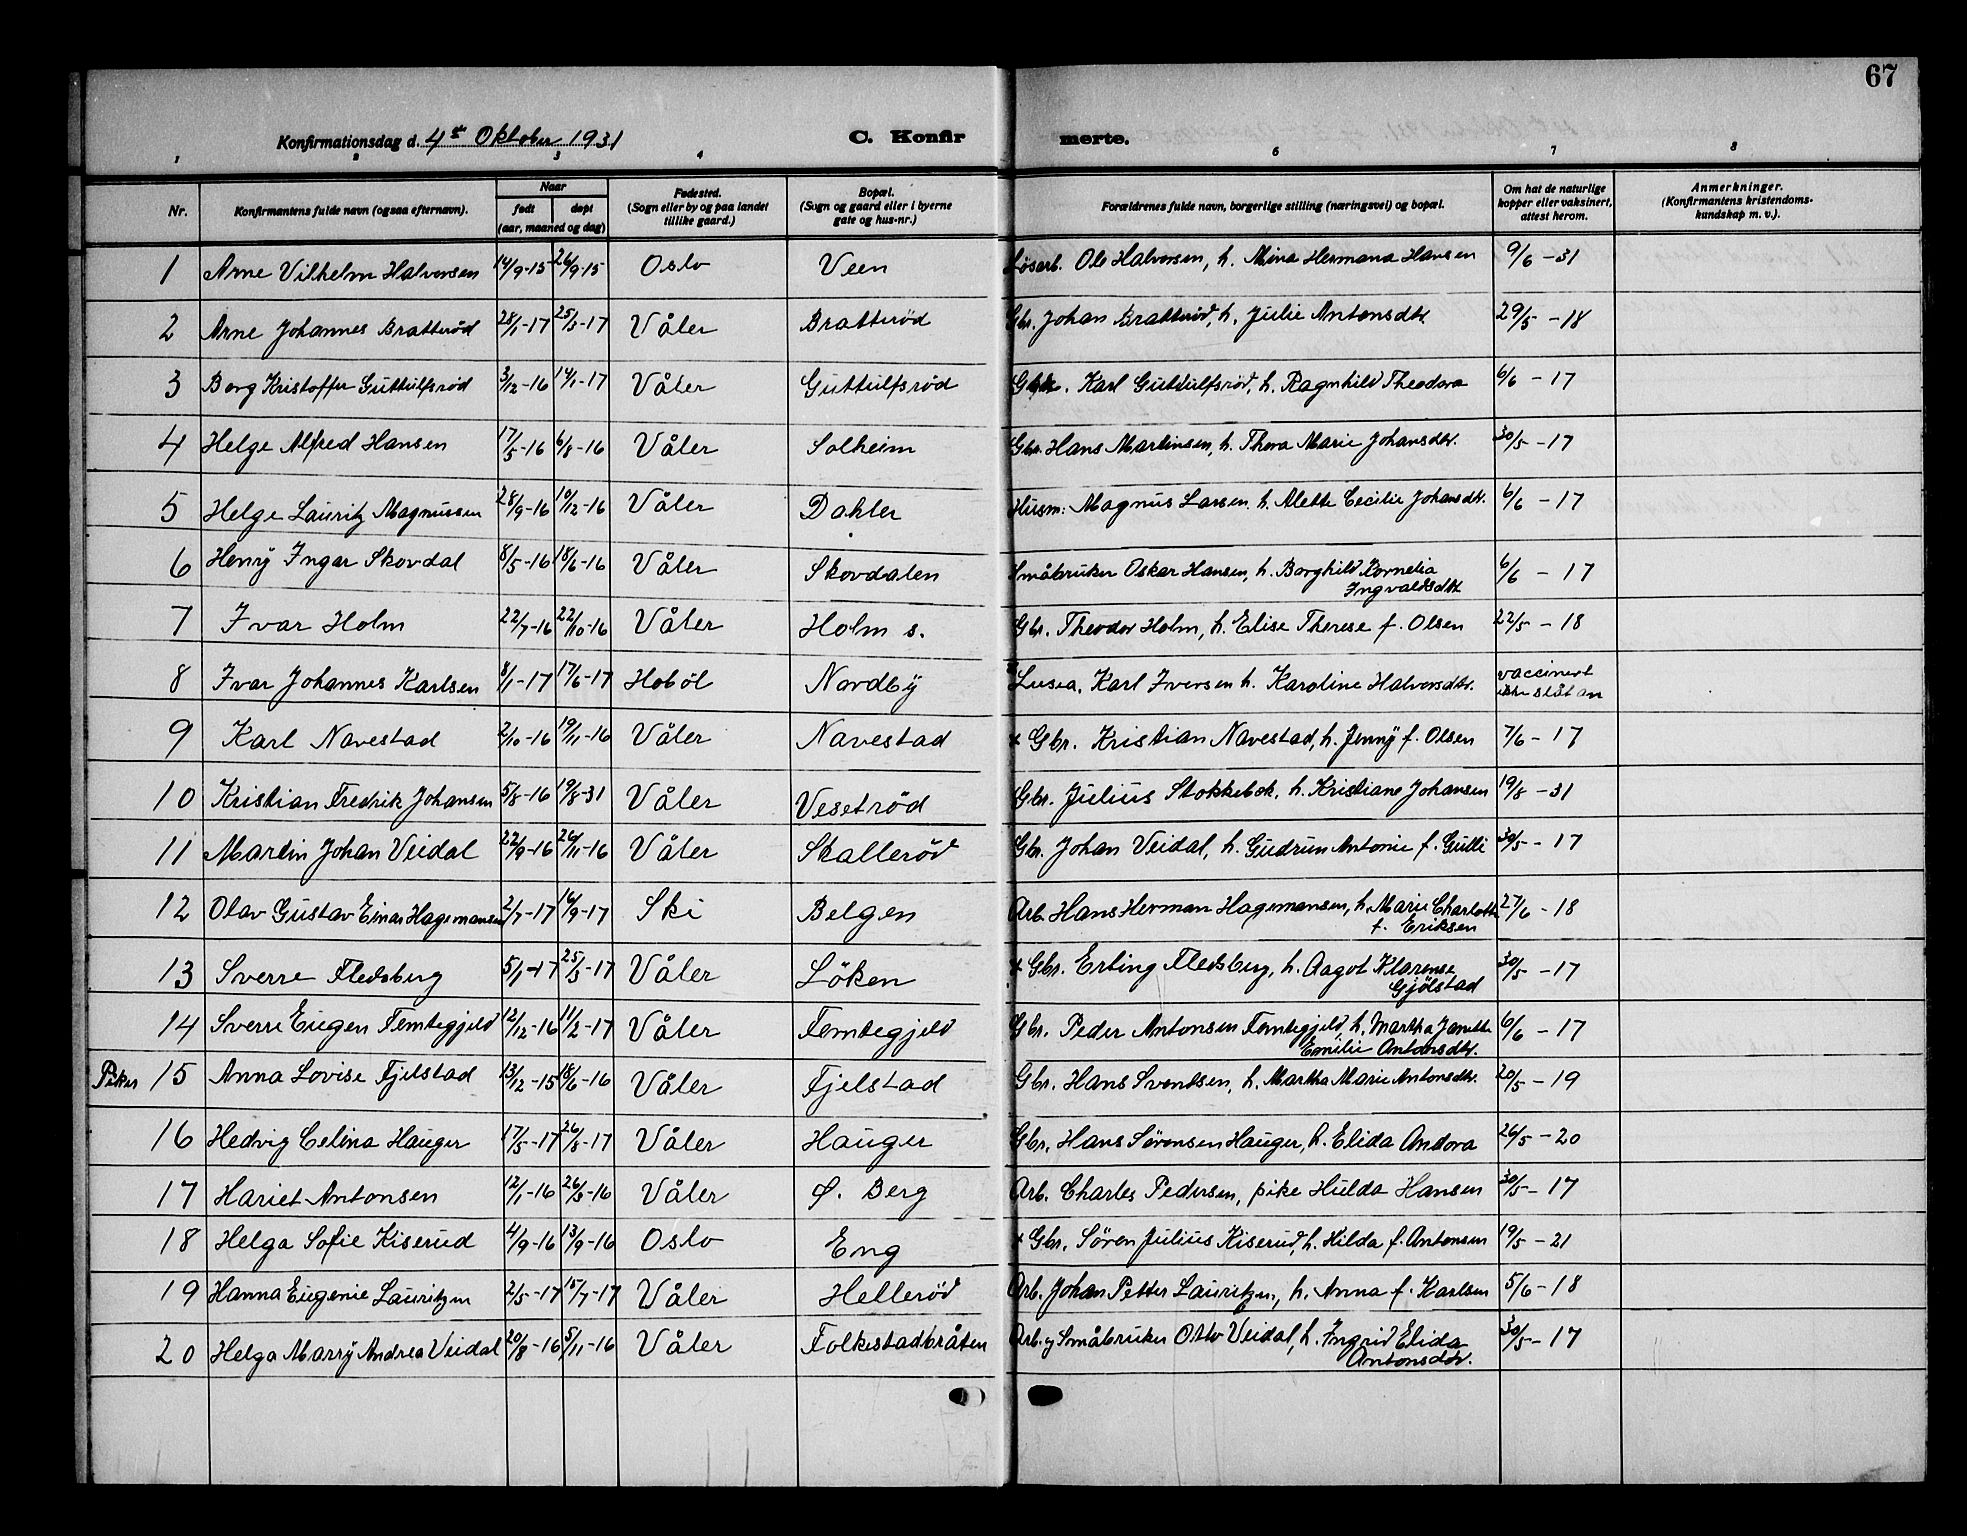 67
Konfirmationsdag d. 4de Oktober 1931 C. Konfir merte.
1 2 3 4 6 7 8
Nr. Konfirmantens fulde navn (ogsaa efternavn). Naar født døpt (aar, maaned og dag) Fødested. (Sogn eller by og paa landet tillike gaard.) Bopæl. (Sogn og gaard eller i byerne gate og hus-nr.) Forældrenes fulde navn, borgerlige stilling (næringsvei) og bopæl. Om hat de naturlige kopper eller vaksinert, attest herom. Anmerkninger. (Konfirmantens kristendoms- kundskap m. v.).
1 Arne Vilhelm Halvorsen 14/9-15 26/9-15 Oslo Veen Løsarb. Ole Halvorsen, h. Mina Hermana Hansen 9/6 - 31
2 Arne Johannes Bratterød 28/1-17 25/3-17 Våler Bratterød Gbr. Johan Bratterød, h. Julie Antonsdtr. 29/5 - 18
3 Borg Kristoffer Guttulfsrød 3/12-16 14/1-17 Våler Guttulfsrød Gbr. Karl Guttulfsrød, h. Ragnhild Theodora 6/6 - 17
4 Helge Alfred Hansen 17/5-16 6/8-16 Våler Solheim Gbr. Hans Martinsen, h. Thora Marie Johansdtr. 30/5 - 17
5 Helge Lauritz Magnussen 28/9-16 10/12-16 Våler Dahler Husm: Magnus Larsen. h. Alette Cecilie Johansdtr. 6/6 - 17
6 Henry Ingar Skovdal 8/5-16 18/6-16 Våler Skovdalen Småbruker Oskar Hansen, h. Borghild Kornelia 6/6 - 17
Ingvaldsdtr.
7 Ivar Holm 22/7-16 22/10-16 Våler Holm s. Gbr. Theodor Holm, h. Elise Therese f. Olsen 22/5 - 18
8 Ivar Johannes Karlsen 8/1-17 17/6-17 Hobøl Nordby Karl Iversen h. Karoline Halvorsdtr. vaccinert
ikke slåt an
9 Karl Navestad 2/10-16 19/11-16 Våler Navestad + Gbr. Kristian Navestad, h. Jenny f. Olsen 7/6 - 17
10 Kristian Fredrik Johansen 5/8-16 19/8-31 Våler Vesetrød Gbr. Julius Stokkebek, h. Kristiane Johansen 19/8 - 31
11 Martin Johan Veidal 22/9-16 26/11-16 Våler Skallerød Gbr. Johan Veidal, h. Gudrun Antonie f. Gulli 30/5 - 17
12 Olav Gustav Einar Hagemansen 2/7-17 16/9-17 Ski Belgen Arb. Hans Herman Hagemansen, h. Marie Charlotte 27/6 - 18
f. Eriksen
13 Sverre Fledsberg 5/1-17 25/3-17 Våler Löken + Gbr. Erling Fledsberg, h. Aagot Klarense 30/5 - 17
Gjølstad
14 Sverre Eugen Femtegjeld 12/12-16 11/2-17 Våler Femtegjeld Gbr. Peder Antonsen Femtegjeld, h. Martha Janette 6/6 - 17
Emilie Antonsdtr.
Piker 15 Anna Lovise Fjelstad 13/12-15 18/6-16 Våler Fjelstad Gbr. Hans Svendsen, h. Martha Marie Antonsdtr. 20/5 - 19
16 Hedvig Celina Hauger 17/5-17 26/8-17 Våler Hauger Gbr. Hans Sørensen Hauger, h. Elida Andora 26/5 - 20
17 Hariet Antonsen 12/1-16 26/3-16 Våler Ø. Berg Arb. Charles Pedersen, pike Hulda Hansen 30/5 - 17
18 Helga Sofie Kiserud 4/9-16 13/9-16 Oslo Eng + Gbr. Søren Julius Kiserud, h. Hilda f. Antonsen 19/5 - 21
19 Hanna Eugenie Lauritzen 2/5-17 15/7-17 Våler Hellerød Arb. Johan Petter Lauritzen, h. Anna f. Karlsen 5/6 - 18
20 Helga Marry Andrea Veidal 20/8-16 5/11-16 Våler Folkestadbråten Arb. og Småbruker Otto Veidal, h. Ingrid Elida 30/5 - 17
Antonsdtr.